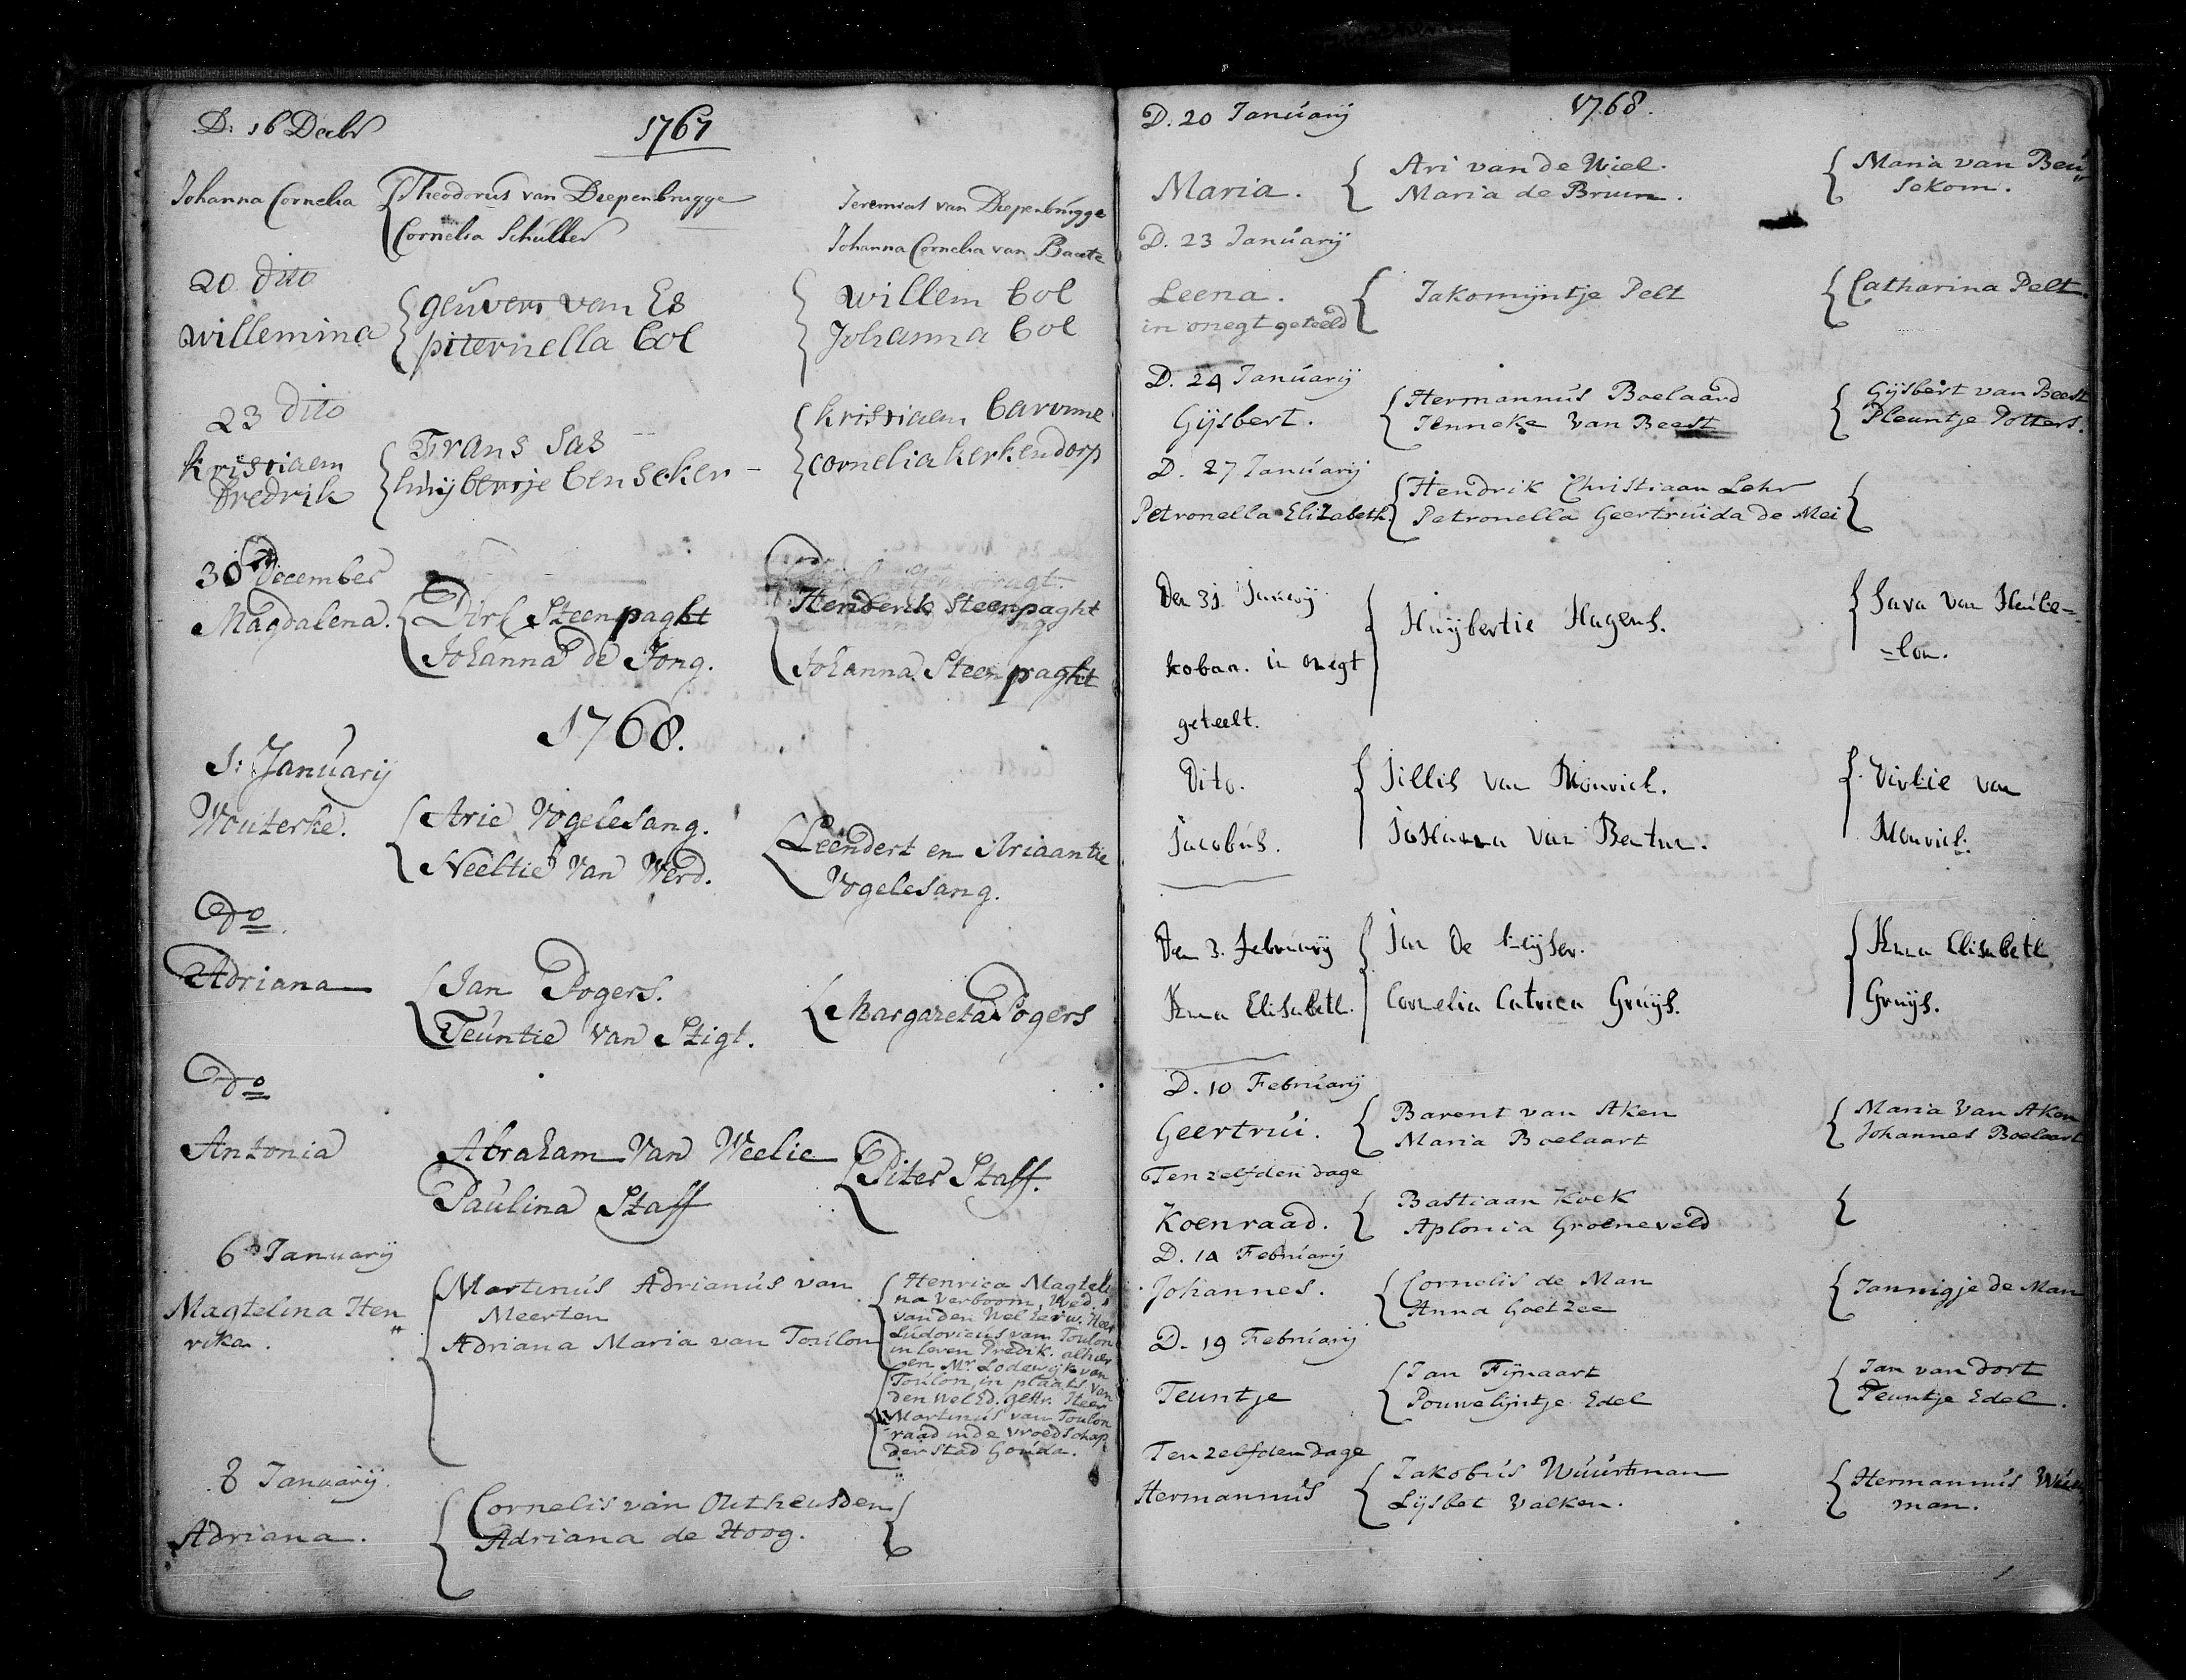 D: 16 Decbr
1767
Johanna Cornelia
Theodorus van Diepenbrugge
Cornelia Schuller
Jeremias van Diepenbrugge
Johanna Cornelia van Baate
20 dito
willemina
geuvert van Es
piternella Col
willem Col
Johanna Col
23 dito
kristiaen
fredrik
Frans Sas
huijbertje Censeker
kristiaen
cornelia kerkendorp
30 December
Magdalena.
Dirk Steenpaght
Johanna de Jong.
Henderik Steenpaght
Johanna Steenpaght
1768.
1: January
Wouterke.
Arie Vogelesang.
Neeltie Van Werd.
Leendert en Ariaantie
Vogelesang.
do
Adriana
Jan Pogers.
Teuntie Van Stigt.
Margareta Pogers
do
Antonia
Abraham Van Weelie
Paulina Staff
Piter Staff.
6 January
Magtelina Hen„
rika.
Martinus Adrianus van
Meerten
Adriana Maria van Toulon
Henrica Magteli
na Verboom, Wed.
van den Wel Eerw. Heer
Ludovicus van Toulon
in leven Predik. alhier
en Mr. Lodewijk van
Toulon in plaats van
den Wel Ed. gestr. Heer
Martinus van Toulon
raad inde vroedschap
der Stad Gouda.
8 January.
Adriana.
Cornelis van Outheusden
Adriana de Hoog.
D. 20 January
1768.
Maria.
Ari van de Wiel.
Maria de Bruin.
Maria van Beu„
sekom.
D. 23 January
Leena.
in onegt geteeld
Jakomijntje Pelt
Catharina Pelt.
D. 24 January
Gijsbert.
Hermannus Boelaard
Jenneke van Beest
Gijsbert van Beest
Pleuntje Potters.
D. 27 January
Petronella Elizabeth.
Hendrik Christiaan Lehr
Petronella Geertruida de Mei
Den 31. Januarij
kobaa. in onegt
geteelt.
Huijbertie Hagens.
Sara van Heuke=
=lon.
Dito.
Jacobus.
Jillis van Mourick.
Johanna van Bentum.
Dirkie van
Mourick.
Den 3. februarij
Anna Elisabeth.
Jan De Keijser.
Cornelia Catrica Gruijs.
Anna Elisabeth
Gruijs.
D. 10 February
Geertrui.
Barent van Aken
Maria Boelaart
Maria van Aken
Johannes Boelaart
Ten zelfden dage
Koenraad.
Bastiaan Kock
Aplonia Groeneveld
D. 14 February
Johannes.
Cornelis de Man
Anna Goetzee
Jannigje de Man
D. 19 February
Teuntje
Jan Fijnaart
Pouwelijntje Edel
Jan van Dort
Teuntje Edel.
Ten zelfden dage
Hermannus
Jakobus Wuurtman
Lijsbet Valken.
Hermannus
man.